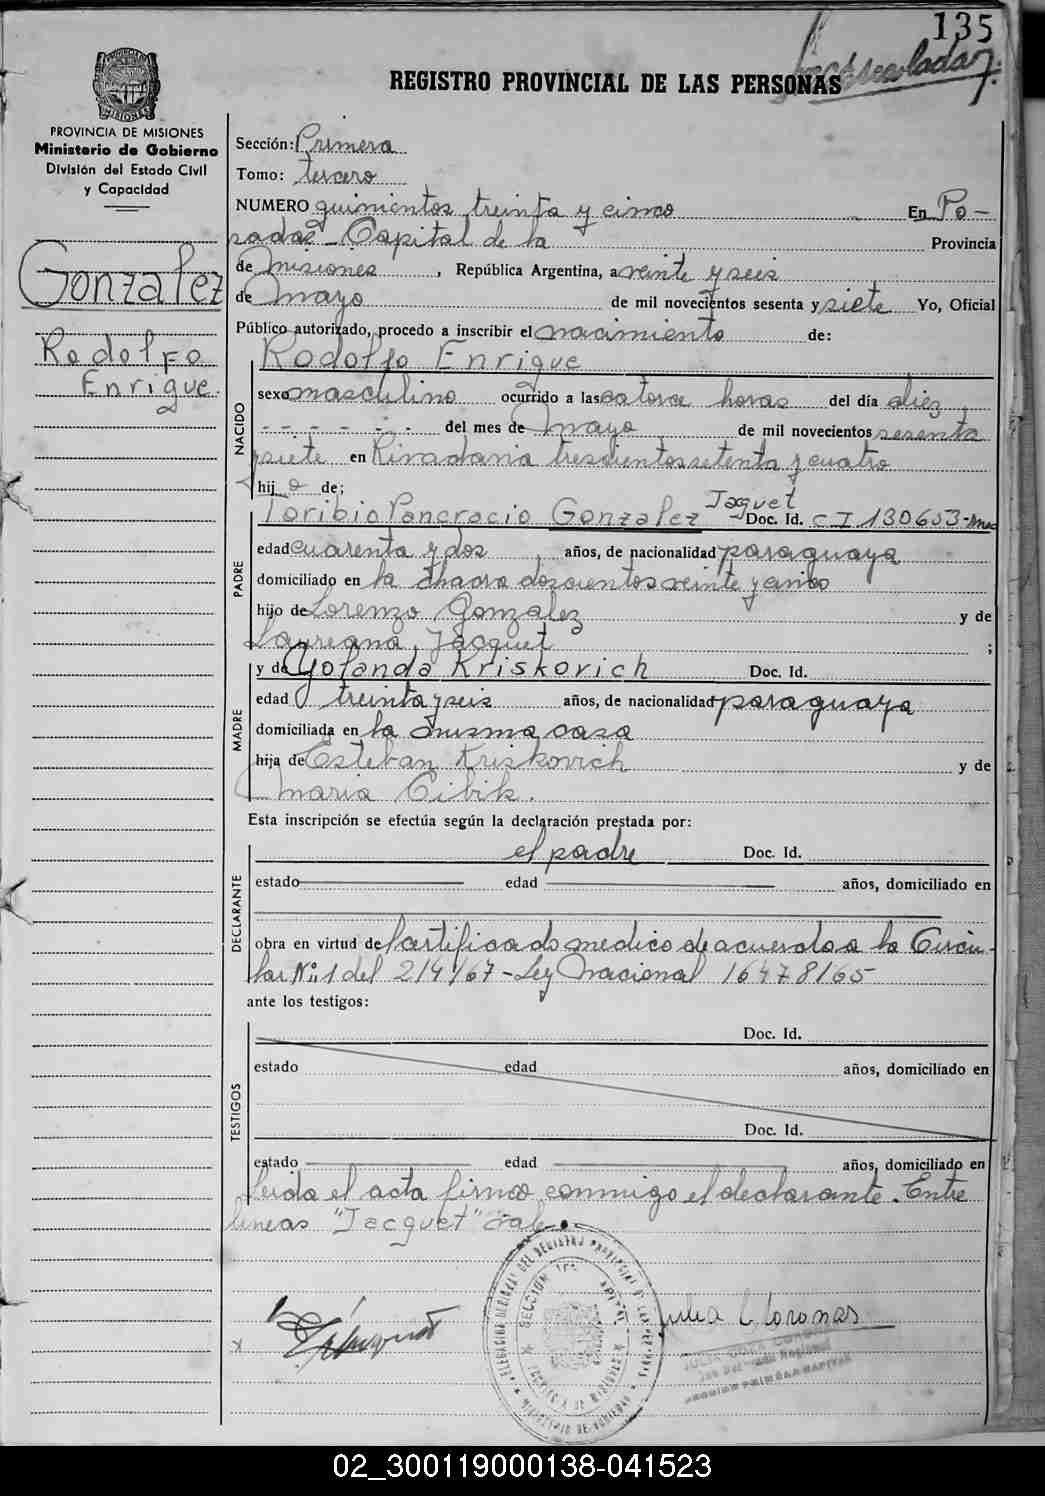 135
REGISTRO PROVINCIAL DE LAS PERSONAS
PROVINCIA DE MISIONES
Ministerio de Gobierno
División del Estado Civil
y Capacidad
Gonzalez
Rodolfo
Enrique
Sección: Primera
Tomo: tercero
NUMERO quinientos treinta y cinco En Po-
sadas - Capital de la Provincia
de Misiones, República Argentina, a veinte y seis
de Mayo de mil novecientos sesenta y siete Yo, Oficial
Público autorizado, procedo a inscribir el nacimiento de:
NACIDO
Rodolfo Enrique
sexo masculino ocurrido a las catorce horas del día diez
- - - - - - del mes de Mayo de mil novecientos sesenta
y siete en Rivadavia trescientos setenta y cuatro
hijo de;
Jaquet
PADRE
Toribio Pancracio Gonzalez Doc. Id. CI 130653-
edad cuarenta y dos años, de nacionalidad paraguaya
domiciliado en la Chacra doscientos veinte y cinco
hijo de Lorenzo Gonzalez y de
Laureana Jacquet ;
MADRE
y de Yolanda Kriskovich Doc. Id.
edad treinta y seis años, de nacionalidad paraguaya
domiciliada en la misma casa
hija de Esteban Kriskovich y de
Maria Cibik.
Esta inscripción se efectúa según la declaración prestada por:
DECLARANTE
el padre Doc. Id.
estado edad años, domiciliado en
obra en virtud de Certificado medico de acuerdo a la Circu-
lar Nº 1 del 2/4/67 - Ley Nacional 16478/65
ante los testigos:
TESTIGOS
Doc. Id.
estado edad años, domiciliado en
Doc. Id.
estado edad años, domiciliado en
Leida el acta firma conmigo el declarante. Entre
lineas "Jacquet" vale.
x
SECCION
02_300119000138-041523